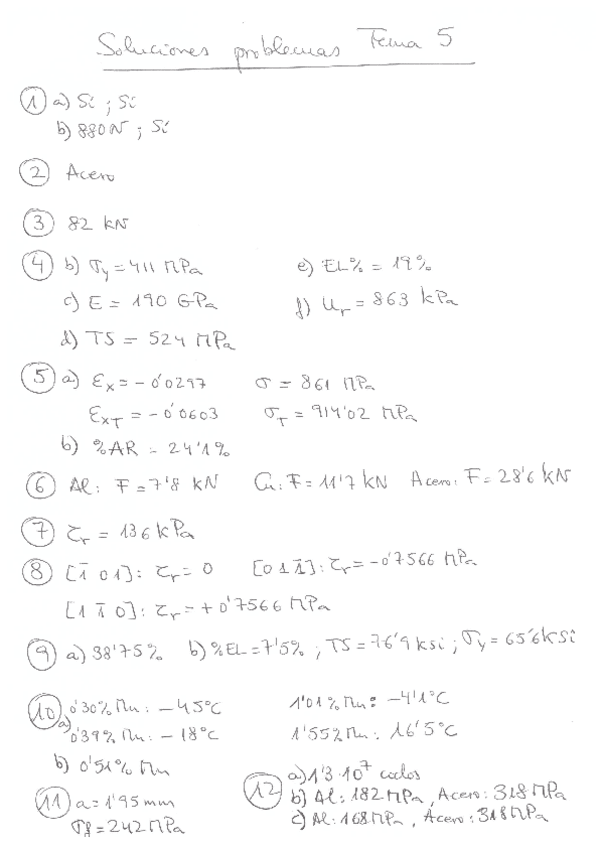 Soluciones problemas Tema 5
① a) Sí ; Sí
b) 880N ; Sí
② Acero
③ 82 kN
④ b) σy = 411 MPa e) EL% = 19%
c) E = 190 GPa f) Ur = 863 kPa
d) TS = 524 MPa
⑤ a) εx = -0'0297 σ = 861 MPa
εxT = -0'0603 σT = 914'02 MPa
b) %AR = 24'1%
⑥ Al: F = 7'8 kN Cu: F = 11'7 kN Acero: F = 28'6 kN
⑦ τr = 136 kPa
⑧ [1̄ 0 1]: τr = 0 [0 1 1̄]: τr = -0'7566 MPa
[1 1̄ 0]: τr = +0'7566 MPa
⑨ a) 38'75% b) %EL = 7'5% ; TS = 76'9 ksi ; σy = 65'6 ksi
⑩ a) 0'30% Mn: -45°C 1'01% Mn: -4'1°C
0'39% Mn: -18°C 1'55% Mn: 16'5°C
b) 0'51% Mn
⑪ a = 1'95 mm
σf = 242 MPa
⑫ a) 1'3·10⁷ ciclos
b) Al: 182 MPa, Acero: 318 MPa
c) Al: 168 MPa, Acero: 318 MPa